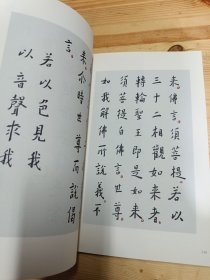 來佛言須菩提若以
三十二相觀如來者
轉輪聖王即是如來
須菩提白佛言世尊
如我解佛所說義不
來尒時世尊而說偈
言
若以色見我
以音聲求我